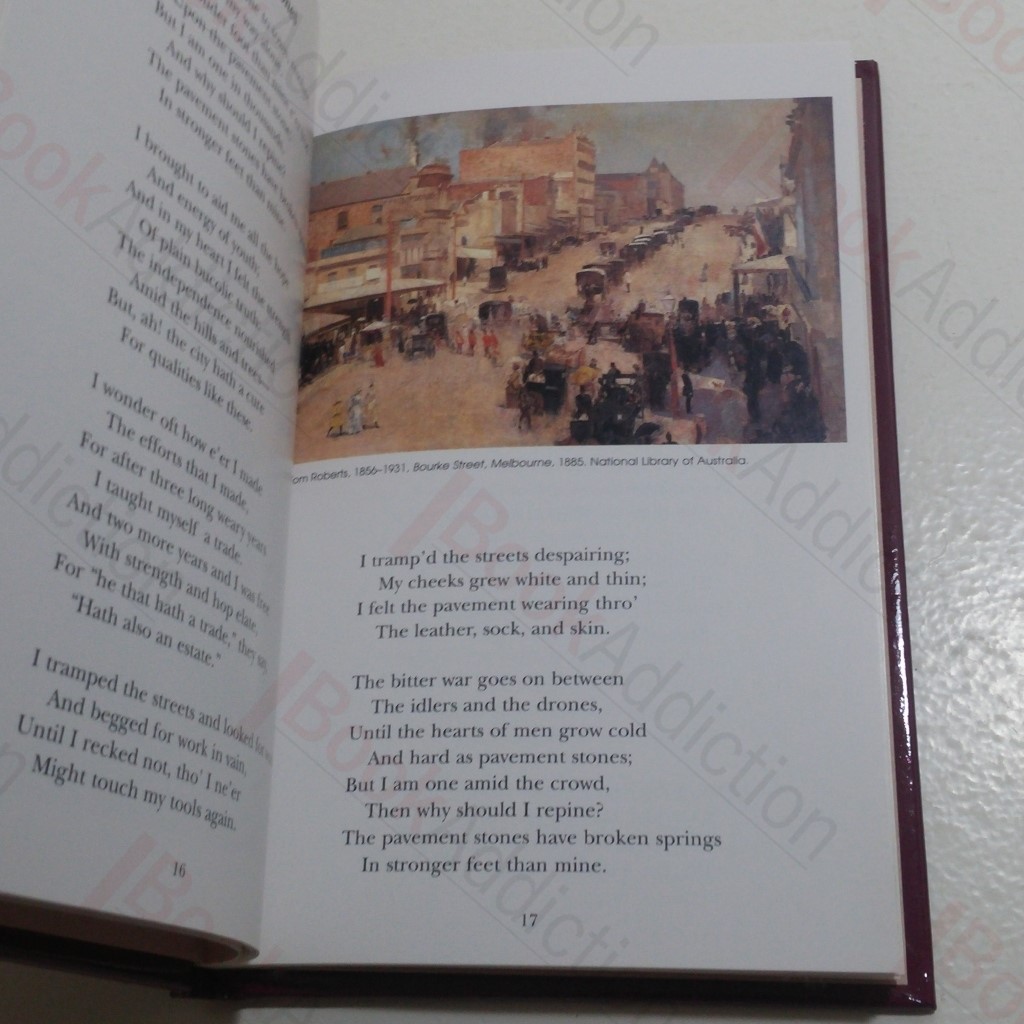 But I am one in thousands
And why should I repine?
The pavement stones have
In stronger feet than mine
I brought to aid me all the hope
And energy of youth;
And in my heart I felt the strength
Of plain bucolic truth
The independence nourished
Amid the hills and trees
But, ah! the city hath a cure
For qualities like these.
I wonder oft how e'er I made
The efforts that I made,
For after three long weary years
I taught myself a trade.
And two more years and I was free
With strength and hop elate.
For "he that hath a trade," they say,
"Hath also an estate."
I tramped the streets and looked for
And begged for work in vain,
Until I recked not, tho' I ne'er
Might touch my tools again.
16
om Roberts, 1856–1931, Bourke Street, Melbourne, 1885. National Library of Australia.
I tramp'd the streets despairing;
My cheeks grew white and thin;
I felt the pavement wearing thro'
The leather, sock, and skin.
The bitter war goes on between
The idlers and the drones,
Until the hearts of men grow cold
And hard as pavement stones;
But I am one amid the crowd,
Then why should I repine?
The pavement stones have broken springs
In stronger feet than mine.
17
BookAddiction